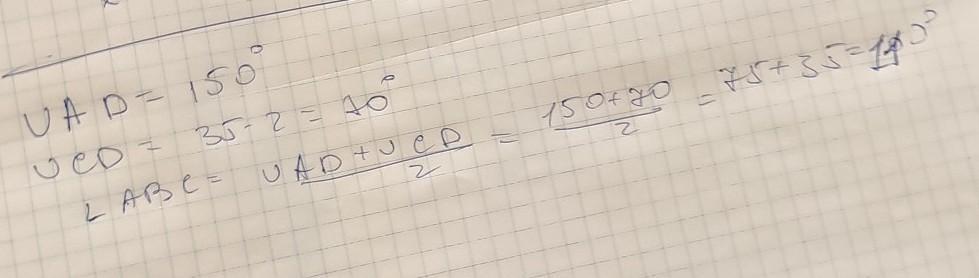 ∪AD = 150°
∪CD = 35·2 = 70°
∠ABC = (∪AD + ∪CD)/2 = (150+70)/2 = 75+35=110°